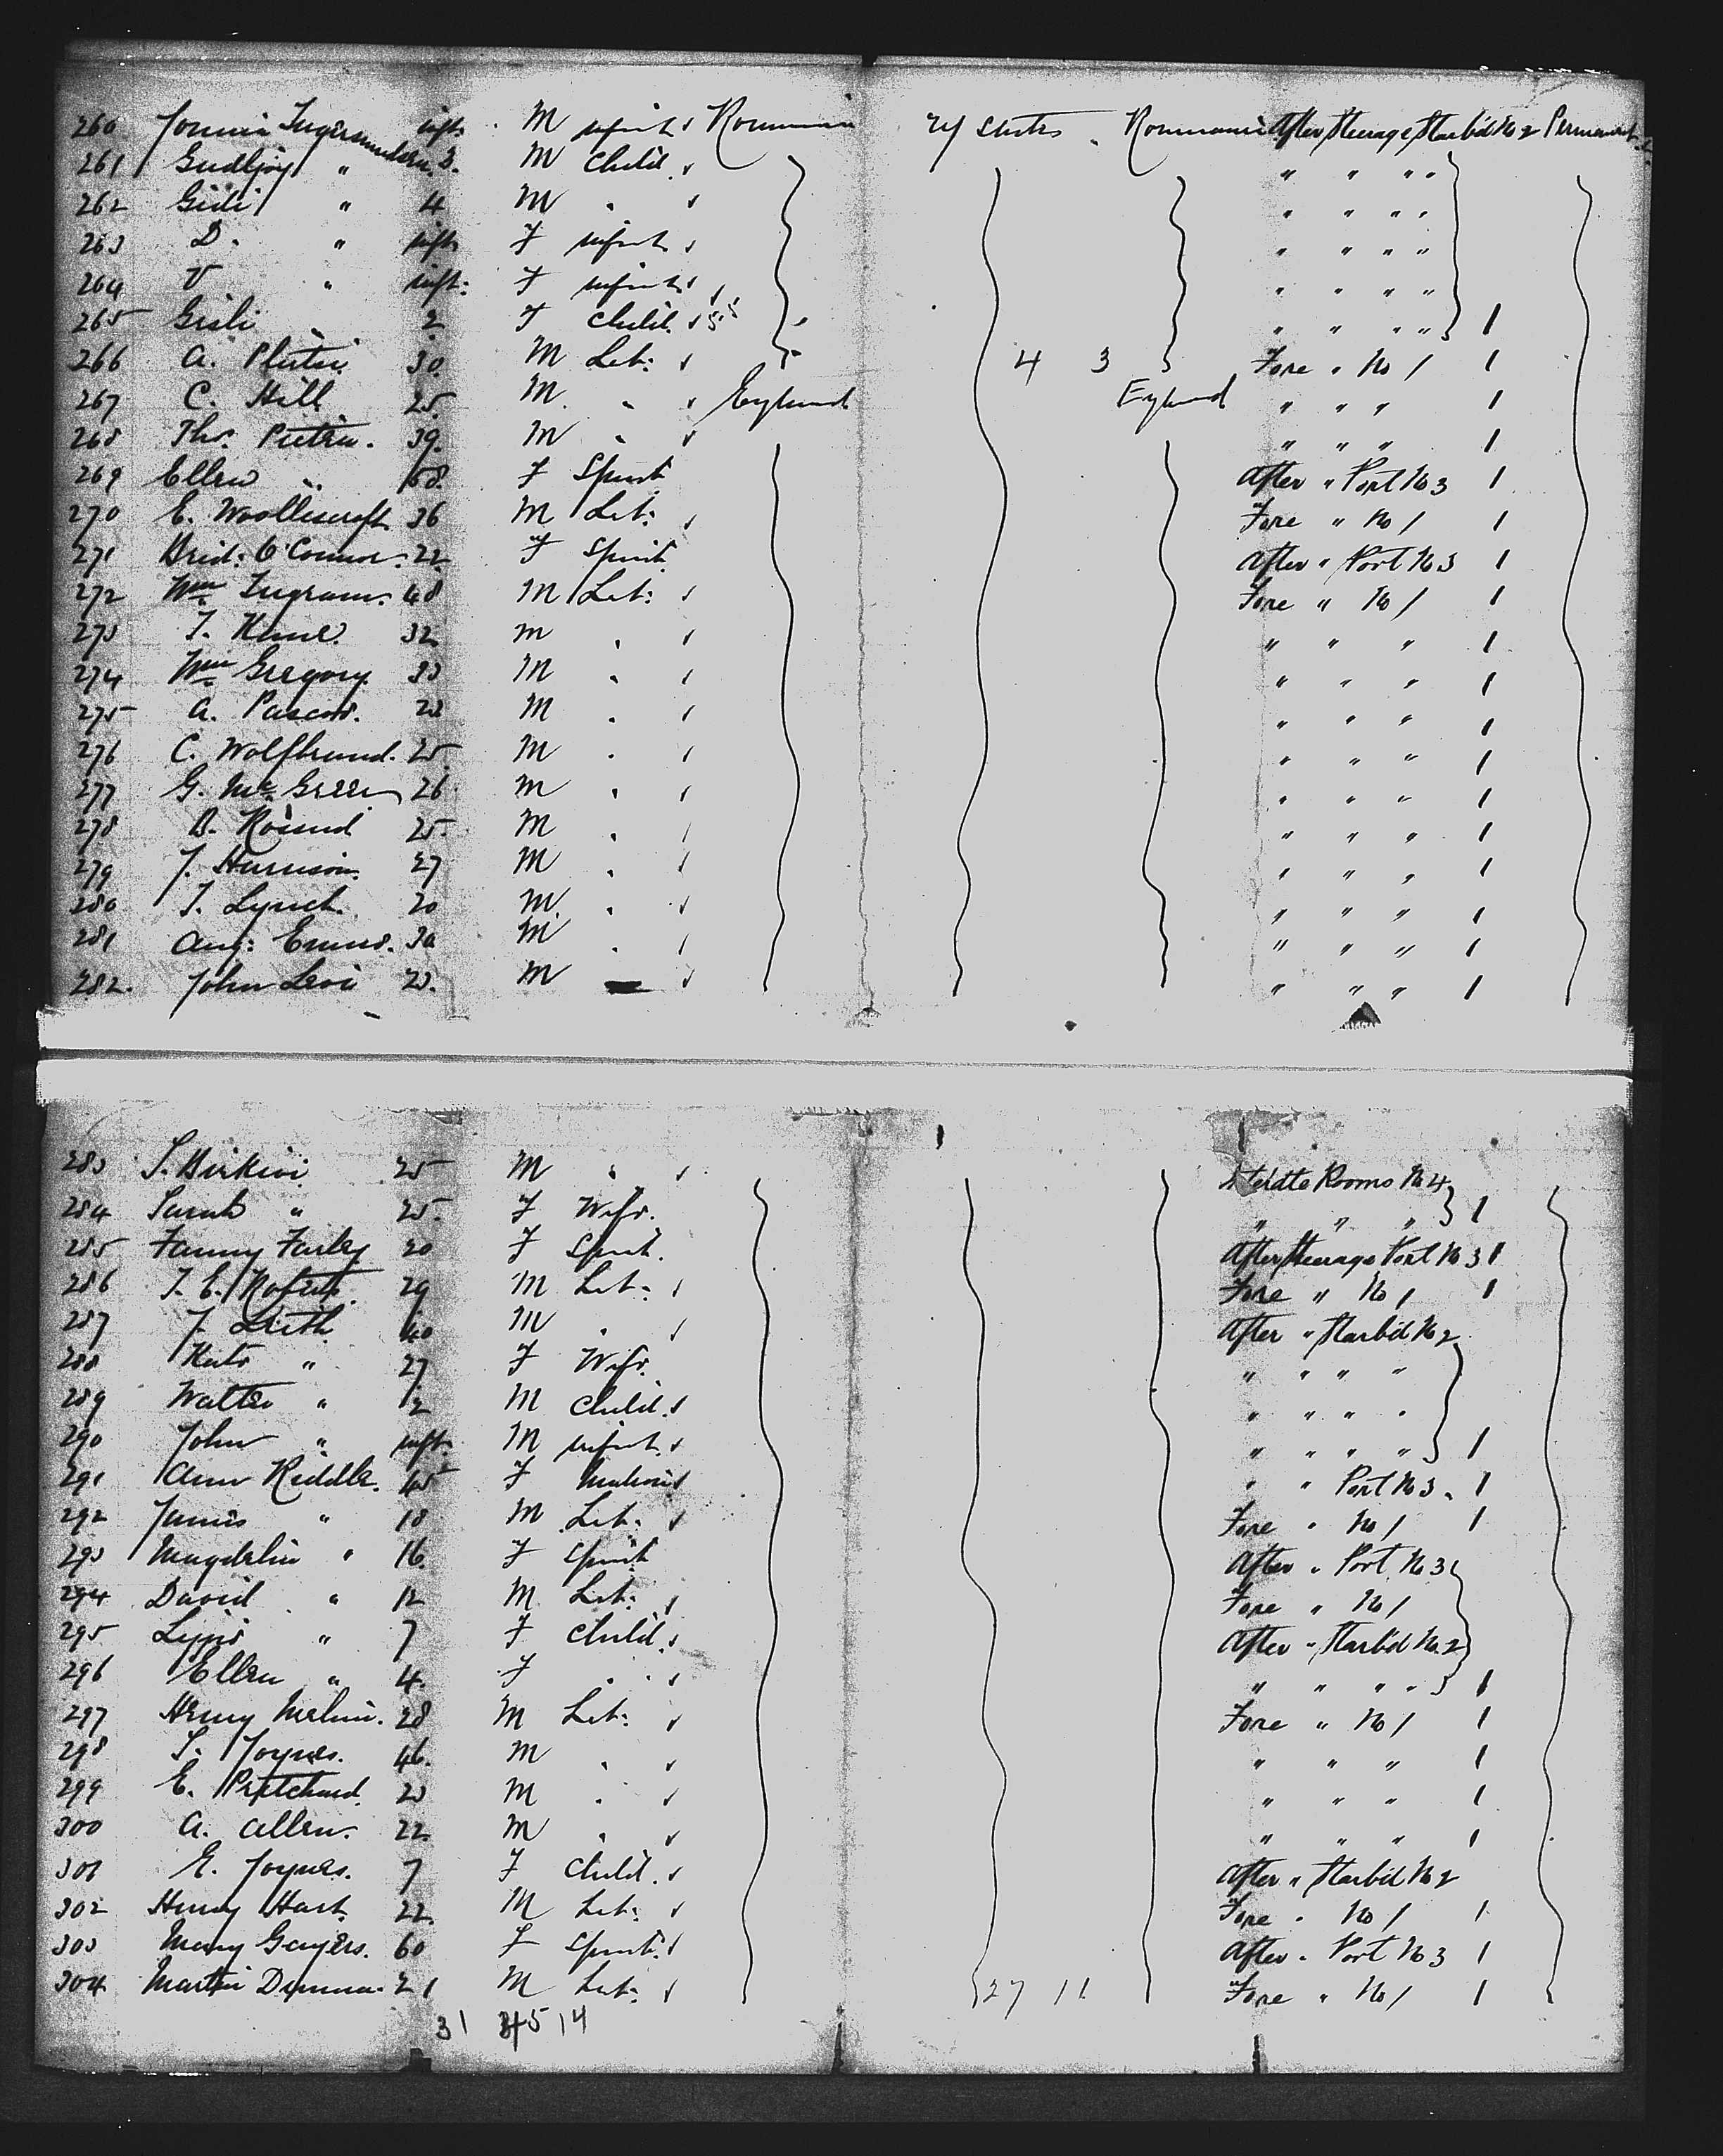 260 Ingersmundsen inft. M infant Roumania U States Roumania After Steerage Starb'd No 2 Permanent
261 " 3. M Child " " " "
262 Gisli " 4 M " " " " "
263 D. " inft F infant " " " "
264 V " inft: F infant " " " "
265 Gisli " 2 F Child. " " " " 1
266 A. 30 M Lab: 4 3 Fore " No 1 1
267 C. Hill 25. M " England England " " " 1
268 Thos. 39. M " " " " 1
269 Ellen " 58. F Spinst After " Port No 3 1
270 E. Woolliscroft 36 M Lab: Fore " No 1 1
271 Brid: O'Connor. 22 F Spinst After " Port No 3 1
272 Wm Ingram. 48 M Lab: Fore " No 1 1
273 T. Kane. 32 M " " " " 1
274 Wm Gregory. 33 M " " " " 1
275 A. Pascoe. 23 M " " " " 1
276 C. Wolfbrand. 25. M " " " " 1
277 G. Mc Green 26 M " " " " 1
278 B. 25. M " " " " 1
279 J. Harrison. 27 M " " " " 1
280 T. Lynch. 20 M. " " " " 1
281 Aug: 30 M " " " " 1
282. John Levi 23. M " " " 1
283 S. Birkin 25 M " Steldte Rooms No 4
284 Sarah " 25. F Wife. " " " 1
285 Fanny Farley 20 F Spinst. After Steerage Port No 3 1
286 T. E. Roberts. 29 M Lab: Fore " No 1 1
287 J. Leith 40 M " After " Starb'd No 2
288 Kate " 27 F Wife. " " " "
289 Walter " 2 M Child. " " " "
290 John " inft. M infant. " " " " 1
291 Ann Riddle. 45 F Matron " " Port No 3 " 1
292 James " 18 M Lab: Fore " No 1 1
293 Magdalin " 16. F Spinst After " Port No 3
294 David " 12 M. Lab: Fore " No 1
295 " 7 F Child. After " Starb'd No. 2
296 Ellen " 4. F " " " " " 1
297 Henry 28 M Lab: Fore " No 1 1
298 S. Joynes. 46. M " " " " 1
299 E. Pritchard. 23 M " " " " 1
300 A. Allen. 22. M " " " " 1
301 E. Joynes. 7 F Child. After " Starb'd No 2
302 Henry Hart. 22. M Lab: Fore " No 1 1
303 Mary 60 F Spinst. After " Port No 3 1
304 Martin 21 M Lab: 27 11 Fore " No 1 1
31 45 14